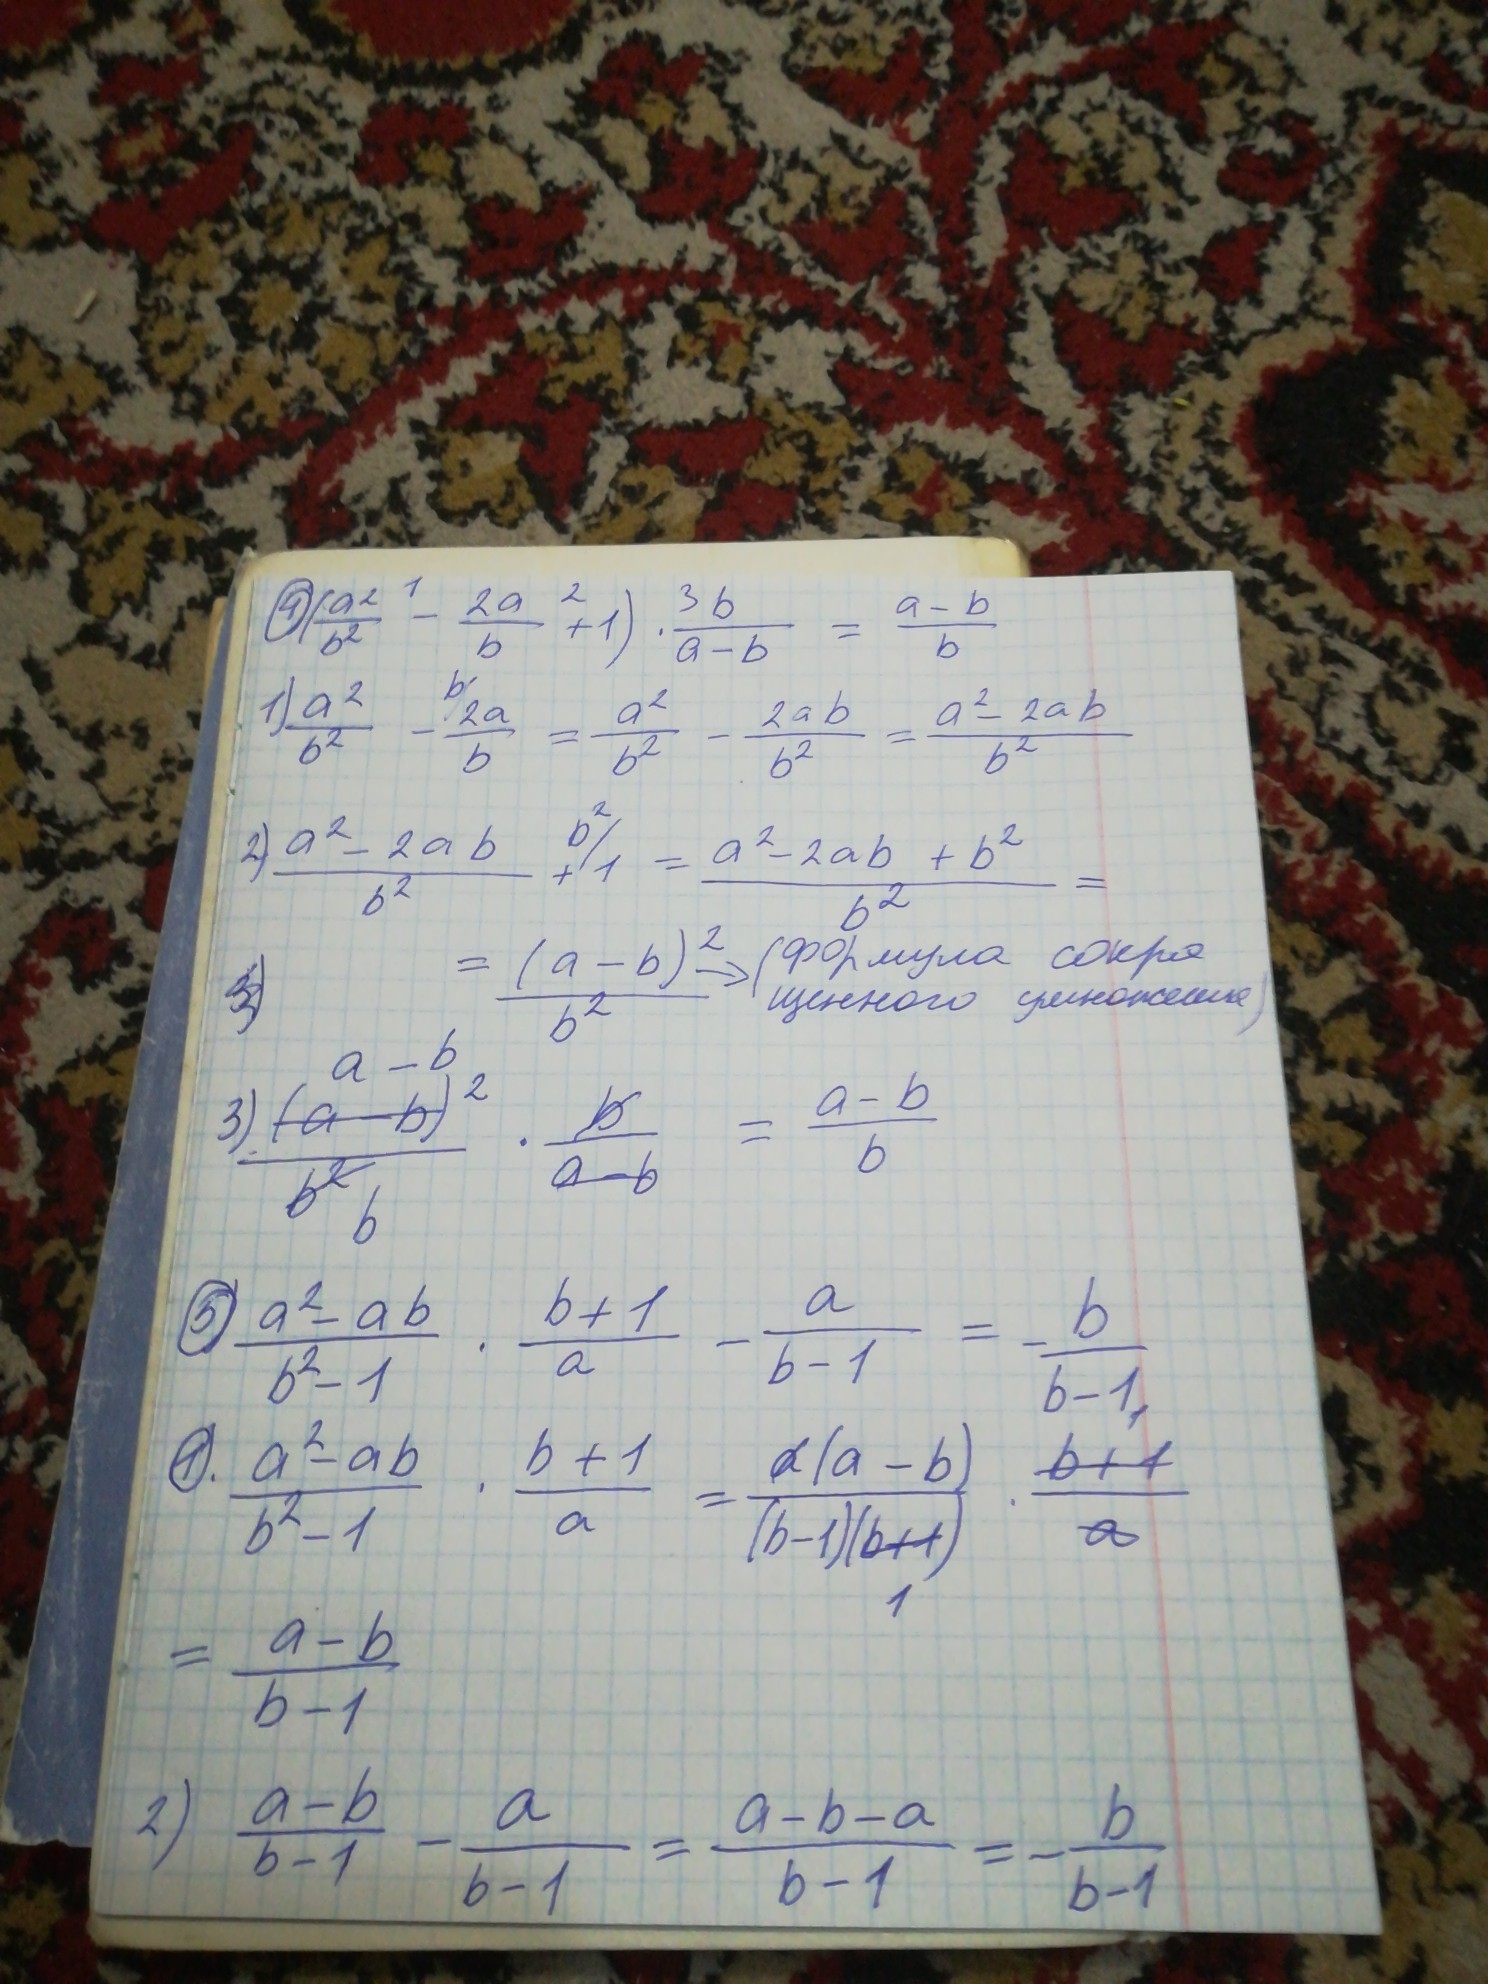 4) (a²/b² ¹- 2a/b ²+ 1) ³· b/(a-b) = (a-b)/b
1) a²/b² - ᵇ⁄2a/b = a²/b² - 2ab/b² = (a²-2ab)/b²
2) (a²-2ab)/b² + ᵇ²⁄1 = (a²-2ab+b²)/b² =
= (a-b)²/b² → (формула сокра
щенного умножения)
3) (a-b)² a-b / b² b · b/(a-b) = (a-b)/b
5) (a²-ab)/(b²-1) · (b+1)/a - a/(b-1) = - b/(b-1)
1. (a²-ab)/(b²-1) · (b+1)/a = a(a-b)/(b-1)(b+1) 1 · (b+1) 1 / a
= (a-b)/(b-1)
2) (a-b)/(b-1) - a/(b-1) = (a-b-a)/(b-1) = - b/(b-1)